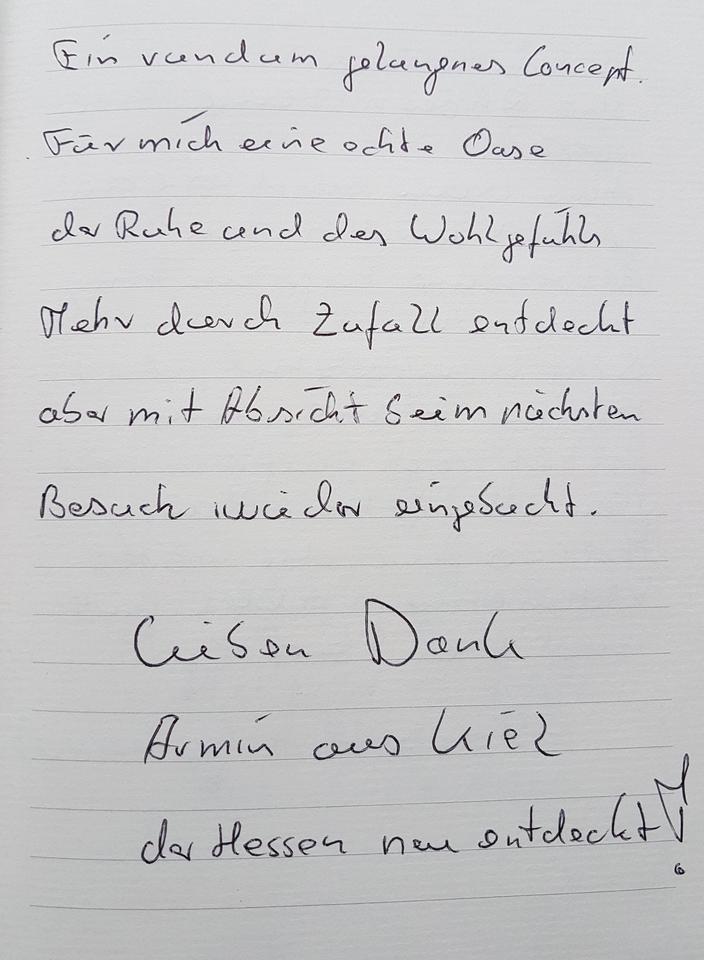 Ein rundum gelungenes Concept.
Für mich eine echte Oase
der Ruhe und des Wohlgefühls
Mehr durch Zufall entdeckt
aber mit Absicht beim nächsten
Besuch wieder eingebucht.
Lieben Dank
Armin aus Kiel
der Hessen neu entdeckt!